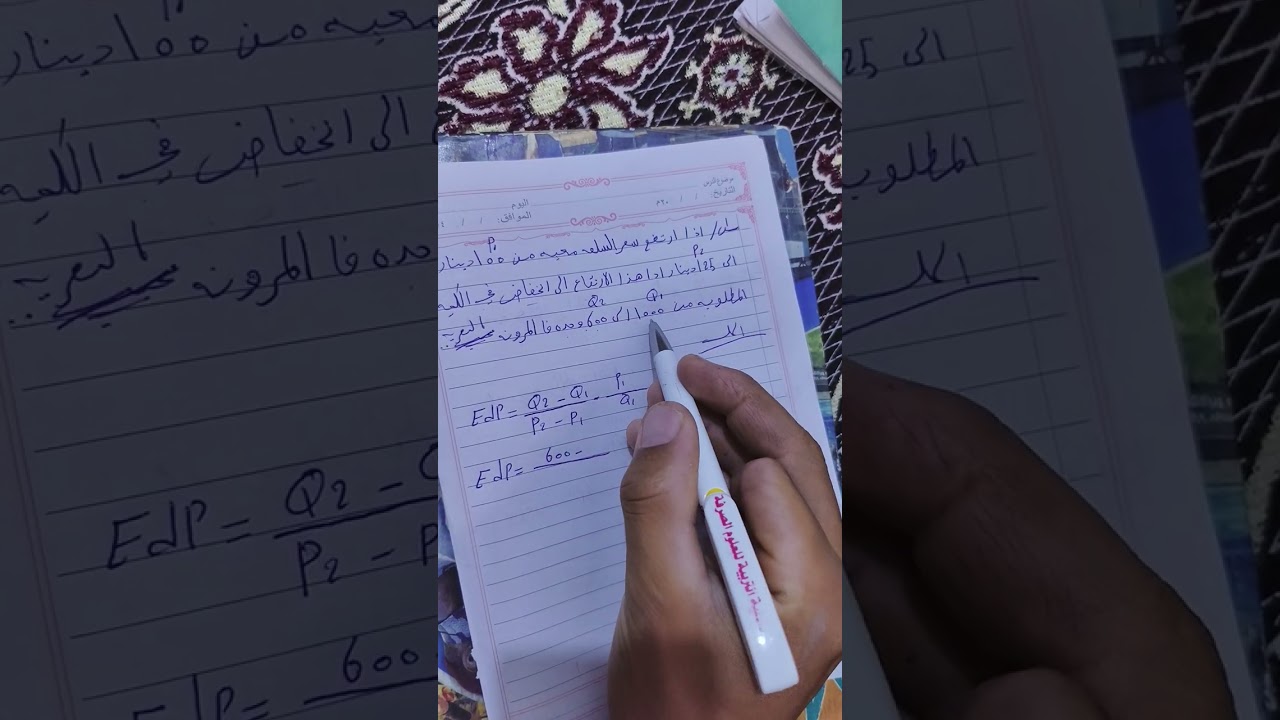 موضوع الدرس
التاريخ: / / ٢٠م
اليوم
الموافق: / /
س١/ اذا ارتفع سعر السلعه معينه من ١٥٥ دينار
P1
الى 125 دينار ادا هذا الارتفاع الى انخفاض في الكميه
P2
المطلوبه من 1000 الى 600 وحده فا المرونه
Q1
Q2
الحل
EdP = Q2 - Q1 / P2 - P1 - P1 / Q1
EdP = 600 -
للعلوم الصرفة